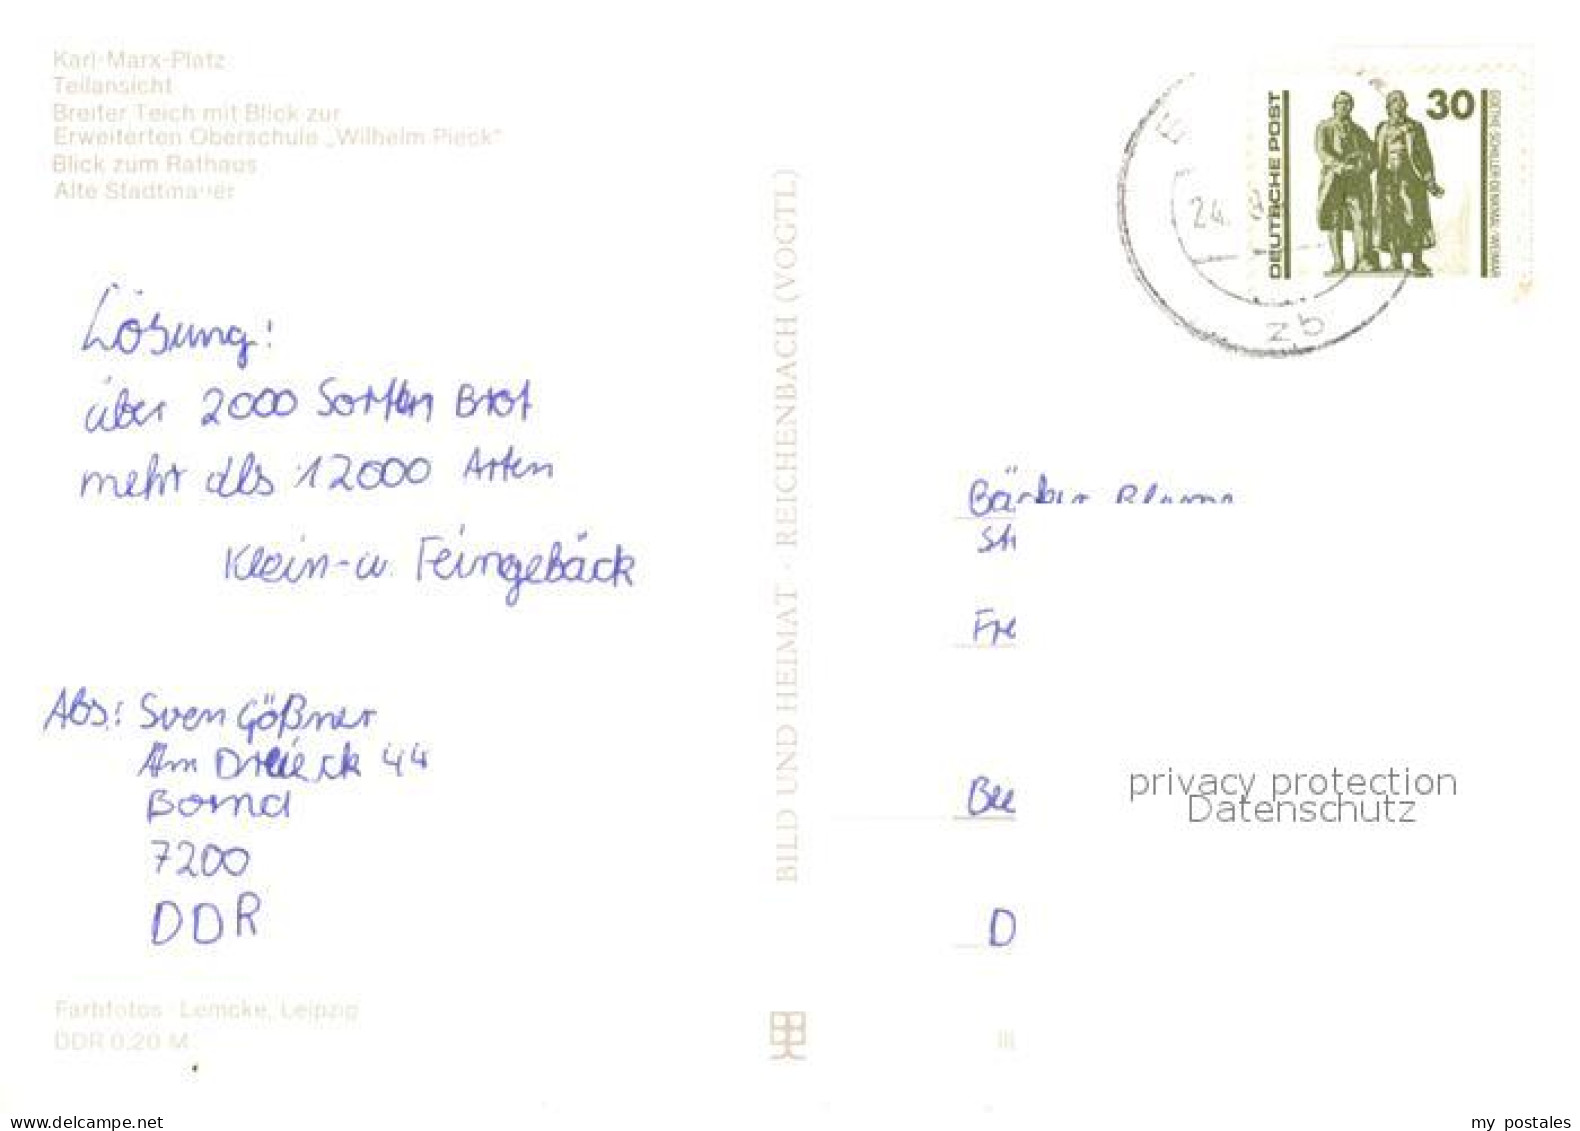 Karl-Marx-Platz
Teilansicht
Breiter Teich mit Blick zur
Erweiterten Oberschule „Wilhelm Pieck"
Blick zum Rathaus
Alte Stadtmauer
DEUTSCHE POST
30
GOETHE-SCHILLER-DENKMAL-WEIMAR
24.
zb
Lösung:
über 2000 Sorten Brot
mehr als 12000 Arten
Klein- u. Feingebäck
Abs: Sven Gößner
Am Dreieck 44
Borna
7200
DDR
BILD UND HEIMAT · REICHENBACH (VOGTL)
D
privacy protection
Datenschutz
Farbfotos: Lemcke, Leipzig
DDR 0,20 M
www.delcampe.net
my postales